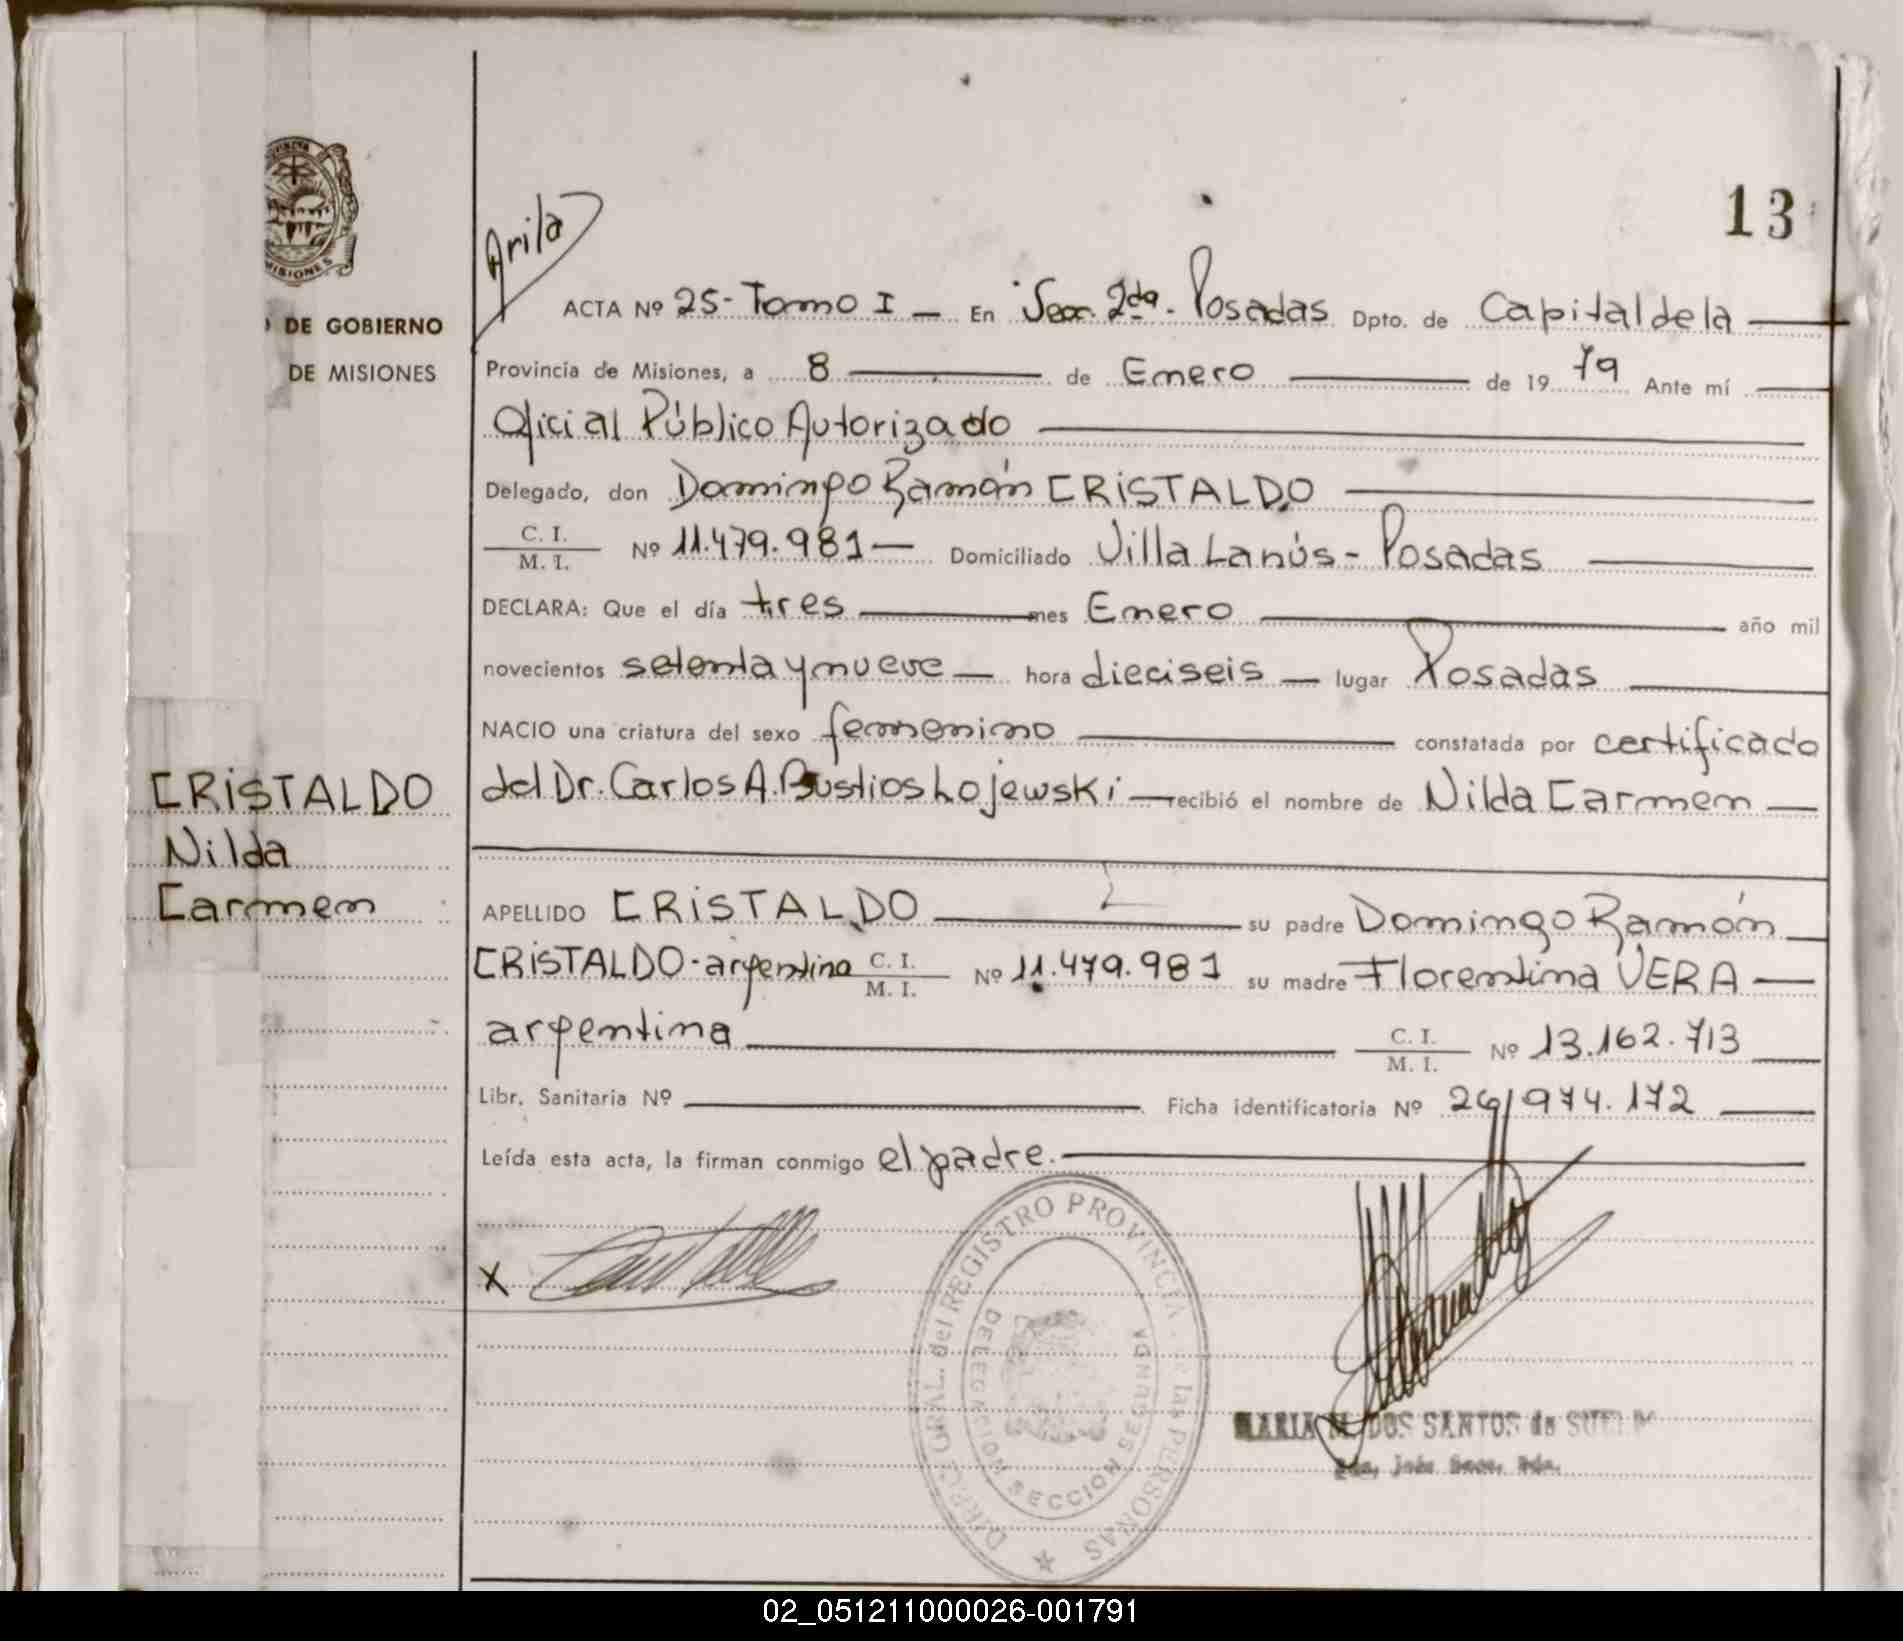 13
ACTA Nº 25- Tomo I — En Secc. 2da. Posadas Dpto. de Capital de la
Provincia de Misiones, a 8 de Enero de 1979 Ante mí
Oficial Público Autorizado
Delegado, don Domingo Ramón CRISTALDO
C. I.
M. I. Nº 11.479.981 — Domiciliado Villa Lanús - Posadas
DECLARA: Que el día tres mes Enero año mil
novecientos setenta y nueve — hora dieciseis — lugar Posadas
NACIO una criatura del sexo femenino constatada por certificado
del Dr. Carlos A. Bustios Lojewski — recibió el nombre de Nilda Carmen —
APELLIDO CRISTALDO su padre Domingo Ramón
CRISTALDO - argentino C. I.
M. I. Nº 11.479.981 su madre Florentina VERA —
argentina C. I.
M. I. Nº 13.162.713
Libr. Sanitaria Nº Ficha identificatoria Nº 26/974.172
Leída esta acta, la firman conmigo el padre.
X
MISIONES
DE GOBIERNO
DE MISIONES
CRISTALDO
Nilda
Carmen
del REGISTRO PROVINCIAL de las PERSONAS
DELEGACION SECCION SEGUNDA
MARIA M. DOS SANTOS de
02_051211000026-001791